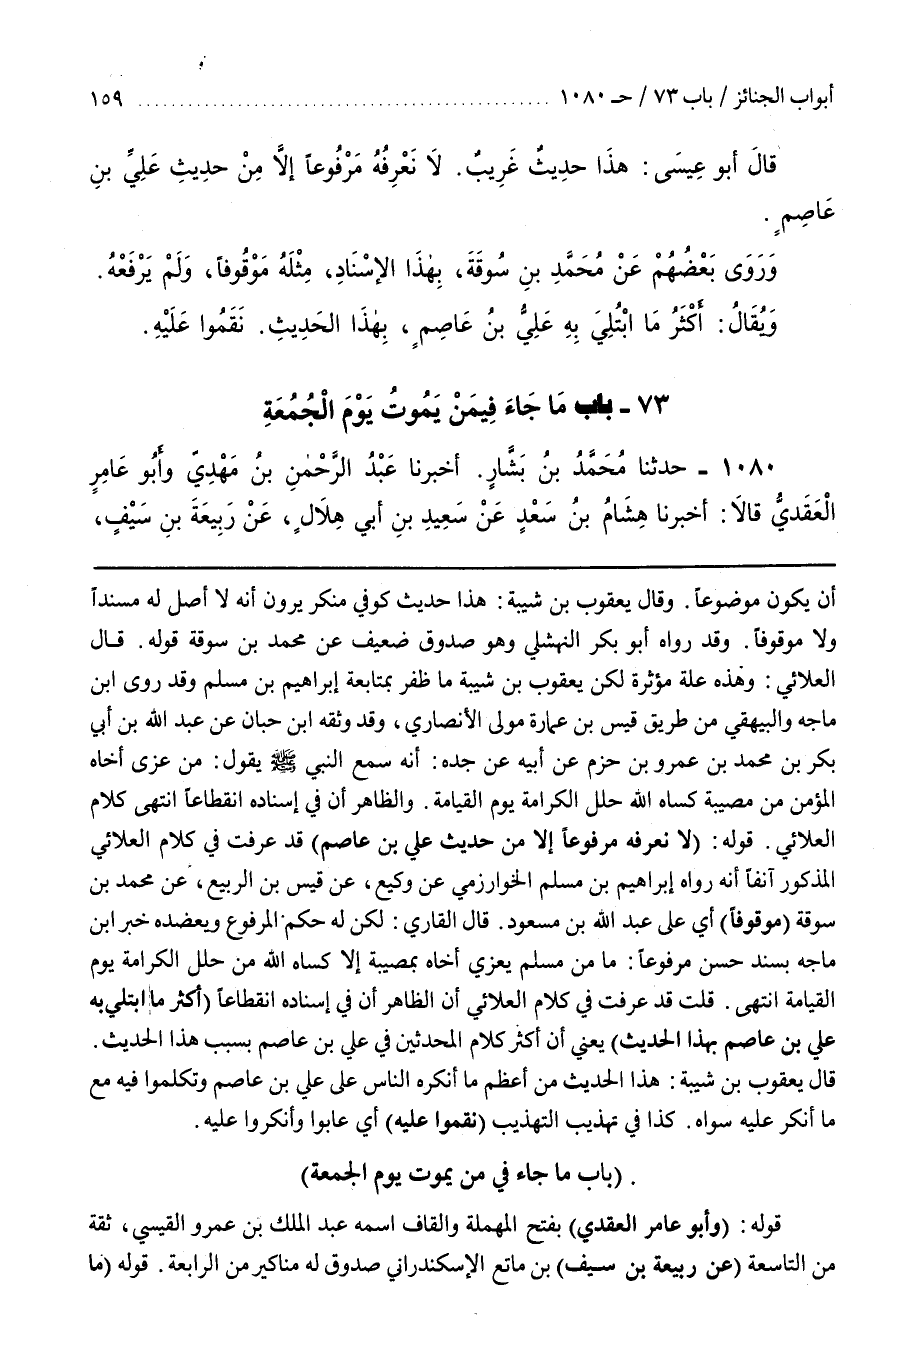 أبواب الجنائز / باب ٧٣ / حـ ١٠٨٠ ........................................ ١٥٩
قالَ أبو عِيسَى: هذَا حديثٌ غَرِيبٌ. لَا نَعْرِفُهُ مَرْفُوعاً إلَّا مِنْ حديثِ عَلِيِّ بنِ
عَاصِمٍ.
وَرَوَى بَعْضُهُمْ عَنْ مُحَمَّدِ بنِ سُوقَةَ، بِهٰذَا الإسْنَادِ، مِثْلَهُ مَوْقُوفاً، وَلَمْ يَرْفَعْهُ.
وَيُقَالُ: أَكْثَرُ مَا ابْتُلِيَ بِهِ عَلِيُّ بنُ عَاصِمٍ، بِهٰذَا الحَدِيثِ. نَقَمُوا عَلَيْهِ.
٧٣ ـ باب مَا جَاءَ فِيمَنْ يَمُوتُ يَوْمَ الْجُمُعَةِ
١٠٨٠ ـ حدثنا مُحَمَّدُ بنُ بَشَّارٍ. أخبرنا عَبْدُ الرَّحْمٰنِ بنُ مَهْدِيّ وأَبُو عَامِرٍ
الْعَقَدِيُّ قالَا: أخبرنا هِشَامُ بنُ سَعْدٍ عَنْ سَعِيدِ بنِ أبي هِلَالٍ، عَنْ رَبِيعَةَ بنِ سَيْفٍ،
أن يكون موضوعاً. وقال يعقوب بن شيبة: هذا حديث كوفي منكر يرون أنه لا أصل له مسنداً
ولا موقوفاً. وقد رواه أبو بكر النهشلي وهو صدوق ضعيف عن محمد بن سوقة قوله. قـال
العلائي: وهٰذه علة مؤثرة لكن يعقوب بن شيبة ما ظفر بمتابعة إبراهيم بن مسلم وقد روى ابن
ماجه والبيهقي من طريق قيس بن عمارة مولى الأنصاري، وقد وثقه ابن حبان عن عبد الله بن أبي
بكر بن محمد بن عمرو بن حزم عن أبيه عن جده: أنه سمع النبي ﷺ يقول: من عزى أخاه
المؤمن من مصيبة كساه الله حلل الكرامة يوم القيامة. والظاهر أن في إسناده انقطاعاً انتهى كلام
العلائي. قوله: (لا نعرفه مرفوعاً إلا من حديث علي بن عاصم) قد عرفت في كلام العلائي
المذكور آنفاً أنه رواه إبراهيم بن مسلم الخوارزمي عن وكيع، عن قيس بن الربيع، عن محمد بن
سوقة (موقوفاً) أي على عبد الله بن مسعود. قال القاري: لكن له حكم المرفوع ويعضده خبر ابن
ماجه بسند حسن مرفوعاً: ما من مسلم يعزي أخاه بمصيبة إلا كساه الله من حلل الكرامة يوم
القيامة انتهى. قلت قد عرفت في كلام العلائي أن الظاهر أن في إسناده انقطاعاً (أكثر ما ابتلي به
علي بن عاصم بهذا الحديث) يعني أن أكثر كلام المحدثين في علي بن عاصم بسبب هذا الحديث.
قال يعقوب بن شيبة: هذا الحديث من أعظم ما أنكره الناس على علي بن عاصم وتكلموا فيه مع
ما أنكر عليه سواه. كذا في تهذيب التهذيب (نقموا عليه) أي عابوا وأنكروا عليه.
. (باب ما جاء في من يموت يوم الجمعة)
قوله: (وأبو عامر العقدي) بفتح المهملة والقاف اسمه عبد الملك بن عمرو القيسي، ثقة
من التاسعة (عن ربيعة بن سيف) بن ماتع الإسكندراني صدوق له مناكير من الرابعة. قوله (ما